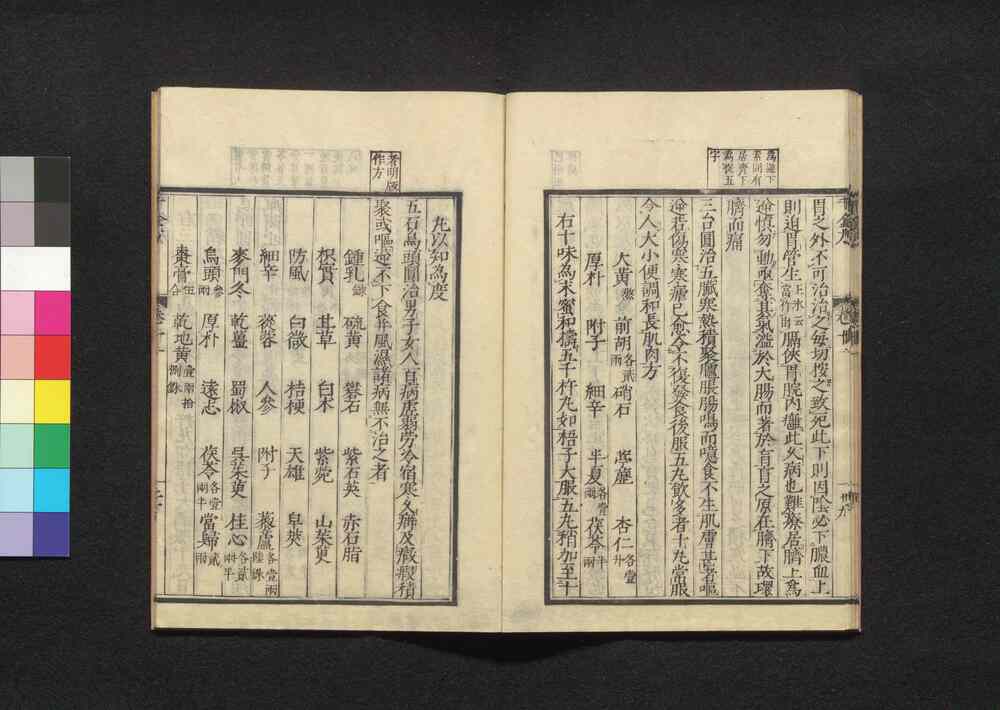 胃之外不可治治之每切搜之致死此下則因陰必下膿血上
則迫胃管生上氷云當作出膈俠胃脘內癰此久病也難療居臍上為
逆慎勿動亟奪其氣溢於大腸而著於肓肓之原在臍下故環
臍而痛
三台圓治五臟寒熱積聚臚脹腸鳴而噫食不生肌膚甚者嘔
逆若傷寒寒瘧已愈令不復發食後服五丸飲多者十丸常服
令人大小便調和長肌肉方
大黃熬 前胡各貳兩 硝石 葶藶 杏仁各壹升
厚朴 附子 細辛 半夏各壹兩 茯苓半兩
右十味為末蜜和擣五千杵丸如梧子大服五丸稍加至十
丸以知為度
五石烏頭圓治男子女人百病虛弱勞冷宿寒久癖及癥瘕積
聚或嘔逆不下食并風濕諸病無不治之者
鍾乳 硫黃 礬石 紫石英 赤石脂
枳實 甘草 白朮 紫菀 山茱萸
防風 白薇 桔梗 天雄 皁莢
細辛 蓯蓉 人參 附子 藜蘆各壹兩陸銖
麥門冬 乾薑 蜀椒 吳茱萸 桂心各貳兩半
烏頭參兩 厚朴 遠志 茯苓各壹兩半 當歸貳兩
棗膏伍合 乾地黃壹兩拾捌銖
為逆下
素問有
居齊下
為從五
字
者明版
作方